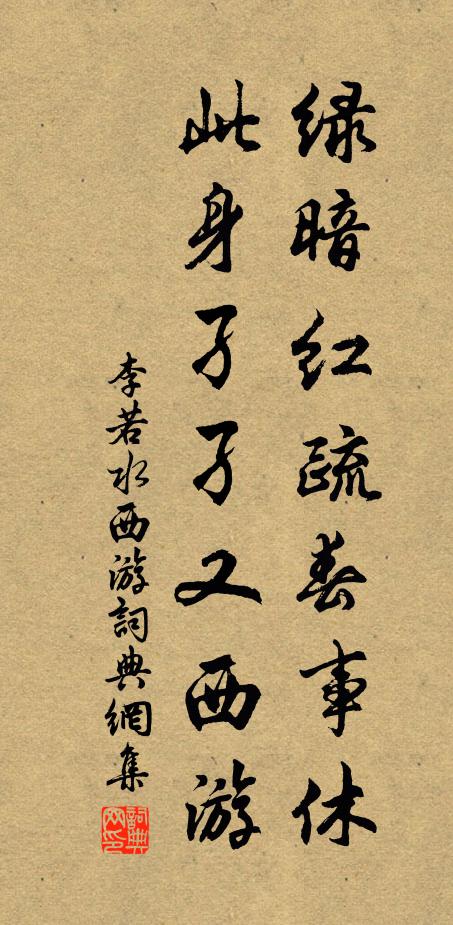 绿暗红疏春事休
此身孑孑又西游
李若水西游詞典網集
詞典网印